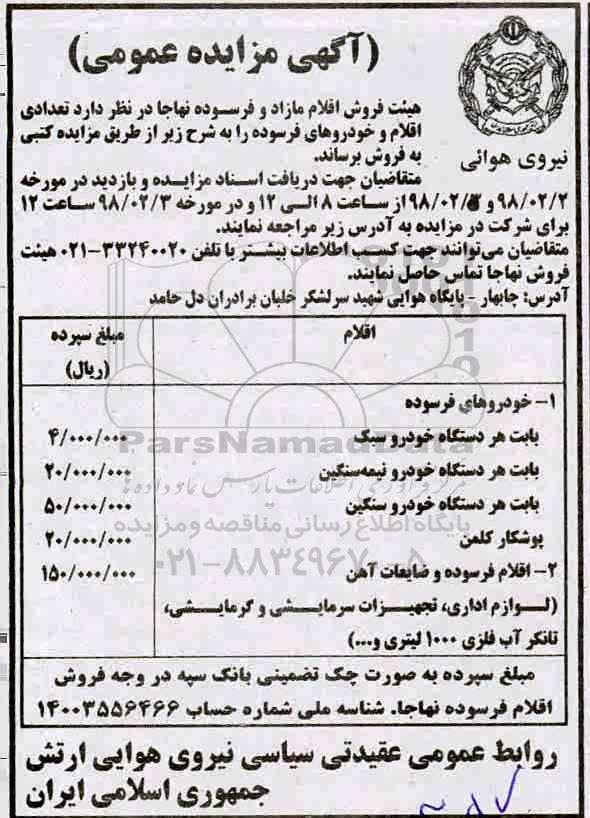 (آگهی مزایده عمومی)
نیروی هوائی
هیئت فروش اقلام مازاد و فرسوده نهاجا در نظر دارد تعدادی
اقلام و خودروهای فرسوده را به شرح زیر از طریق مزایده کتبی
به فروش برساند.
متقاضیان جهت دریافت اسناد مزایده و بازدید در مورخه
۹۸/۰۲/۲ و ۹۸/۰۲/۳ از ساعت ۸ الی ۱۲ و در مورخه ۹۸/۰۲/۳ ساعت ۱۲
برای شرکت در مزایده به آدرس زیر مراجعه نمایند.
متقاضیان می‌توانند جهت کسب اطلاعات بیشتر با تلفن ۳۳۲۴۰۰۲۰-۰۲۱ هیئت
فروش نهاجا تماس حاصل نمایند.
آدرس: چابهار - پایگاه هوایی شهید سرلشکر خلبان برادران دل حامد
اقلام مبلغ سپرده
(ریال)
۱- خودروهای فرسوده
بابت هر دستگاه خودرو سبک ۴/۰۰۰/۰۰۰
ParsNamadData
بابت هر دستگاه خودرو نیمه‌سنگین ۲۰/۰۰۰/۰۰۰
مرکز فرآوری اطلاعات پارس نماد داده ها
بابت هر دستگاه خودرو سنگین ۵۰/۰۰۰/۰۰۰
پایگاه اطلاع رسانی مناقصه و مزایده
پوشکار کلمن ۲۰/۰۰۰/۰۰۰
۰۲۱-۸۸۳۴۹۶۷۰-۵
۲- اقلام فرسوده و ضایعات آهن ۱۵۰/۰۰۰/۰۰۰
(لوازم اداری، تجهیزات سرمایشی و گرمایشی،
تانکر آب فلزی ۱۰۰۰ لیتری و...)
مبلغ سپرده به صورت چک تضمینی بانک سپه در وجه فروش
اقلام فرسوده نهاجا. شناسه ملی شماره حساب ۱۴۰۰۳۵۵۶۴۶۶
روابط عمومی عقیدتی سیاسی نیروی هوایی ارتش
جمهوری اسلامی ایران